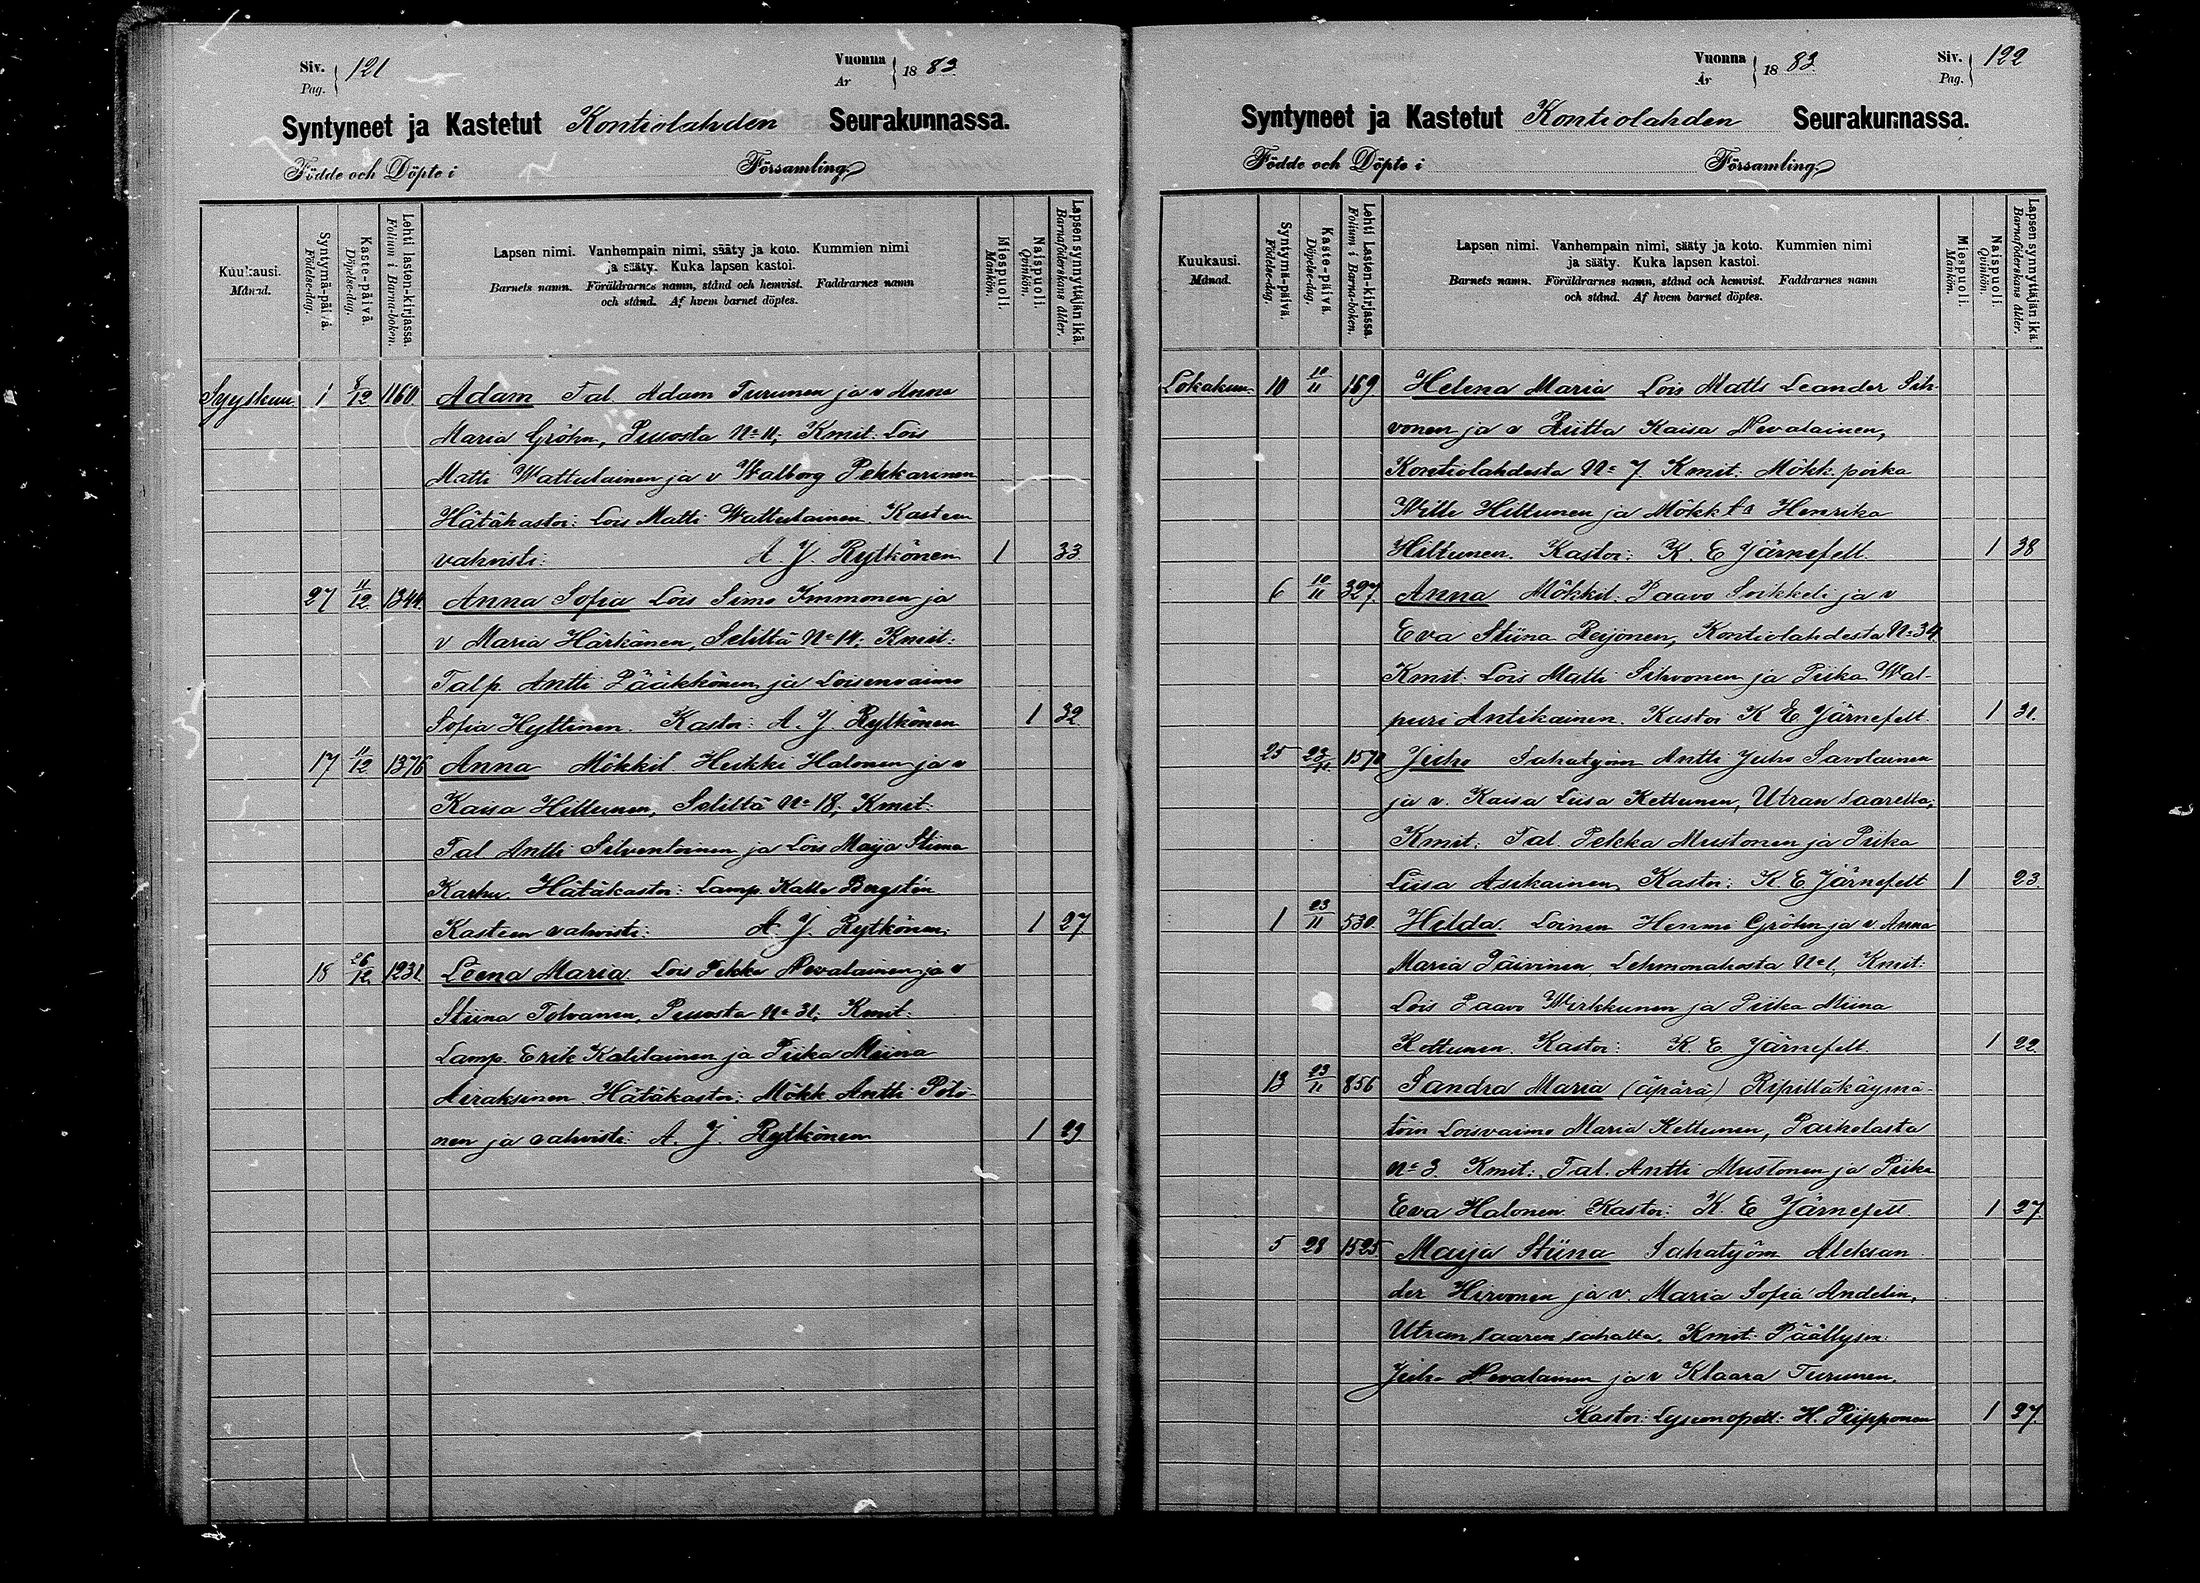 Siv. Pag. 121
Vuonna År 1883.
Syntyneet ja Kastetut Kontiolahden Seurakunnassa.
Födde och Döpte i Församling.
Kuukausi. Månad.
Syntymä-päivä. Födelse-dag.
Kaste-päivä. Döpelse-dag.
Lehti lasten-kirjassa. Folium i Barna-boken.
Lapsen nimi. Vanhempain nimi, sääty ja koto. Kummien nimi
ja sääty. Kuka lapsen kastoi.
Barnets namn. Föräldrarnes namn, stånd och hemvist. Faddrarnes namn
och stånd. Af hvem barnet döptes.
Miespuoli. Mankön.
Naispuoli. Qvinkön.
Lapsen synnyttäjän ikä. Barnaföderskans ålder.
Syyskuu 1 8/12 1160 Adam Tal. Adam Turunen ja v Anna
Maria Gröhn, Puuosta No 11, Kmit: Lois
Matti Wattulainen ja v Walborg Pekkarinen
Hätäkastoi: Lois Matti Wattulainen. Kasteen
vahvisti: A. J. Rytkönen 1 33
27 11/12 1344. Anna Sofia Lois Simo Immonen ja
v Maria Härkänen, Selittä No 14, Kmit:
Talp. Antti Pääkkönen ja Loisenvaimo
Sofia Hyttinen. Kastoi: A. J. Rytkönen 1 32
17 11/12 1376 Anna Mökkil Heikki Halonen ja v
Kaisa Hiltunen, Selittä No 18, Kmit:
Tal Antti Silventoinen ja Lois Maija Stiina
Karhu. Hätäkastoi: Lamp. Kalle Bergstén
Kasteen vahvisti: A J. Rytkönen 1 27
18 26/12 1231. Leena Maria Lois Pekka Nevalainen ja v
Stiina Tolvanen, Puuosta No 31, Kmit:
Lamp. Erik Kalilainen ja Piika Miina
Airaksinen Hätäkastoi: Mökk Antti Pölö-
nen ja vahvisti: A. J. Rytkönen 1 29
Vuonna År 1883
Siv. Pag. 122
Syntyneet ja Kastetut Kontiolahden Seurakunnassa.
Födde och Döpte i Församling.
Kuukausi. Månad.
Syntymä-päivä. Födelse-dag.
Kaste-päivä. Döpelse-dag.
Lehti Lasten-kirjassa. Folium i Barna-boken.
Lapsen nimi. Vanhempain nimi, sääty ja koto. Kummien nimi
ja sääty. Kuka lapsen kastoi.
Barnets namn. Föräldrarnes namn, stånd och hemvist. Faddrarnes namn
och stånd. Af hvem barnet döptes.
Miespuoli. Mankön.
Naispuoli. Qvinkön.
Lapsen synnyttäjän ikä. Barnaföderskans ålder.
Lokakuu. 10 10/11 169 Helena Maria Lois Matti Leander Sih-
vonen ja v Riitta Kaisa Nevalainen,
Kontiolahdesta No 7. Kmit: Mökk. poika
Wille Hiltunen ja Mökk ta Henrika
Hiltunen. Kastoi: K. E Järnefelt. 1 38
6 10/11 327. Anna Mökkil. Paavo Soikkeli ja v
Eva Stiina Reijonen, Kontiolahdesta No 34.
Kmit: Lois Matti Sihvonen ja Piika Wal-
puri Antikainen. Kastoi K E Järnefelt. 1 31.
25 23/11. 1570 Juho Sahatyöm Antti Juho Savolainen
ja v. Kaisa Liisa Kettunen, Utran Saarelta,
Kmit: Tal. Pekka Mustonen ja Piika
Liisa Asikainen, Kastoi: K. E Järnefelt 1 23.
1 23/11 530. Hilda. Loinen Hemmi Gröhn ja v Anna
Maria Päivinen, Lehmonahosta No 1, Kmit:
Lois Paavo Wirkkunen ja Piika Miina
Kottunen. Kastoi: K. E. Järnefelt. 1 22.
13 23/11 856 Sandra Maria (äpärä) Ripilläkäymä-
töin Loisvaimo Maria Kettunen, Paiholasta
No 3. Kmit: Tal. Antti Mustonen ja Piika
Eva Halonen. Kastoi: K. E Järnefelt. 1 27.
5 28 1525. Maija Stiina Sahatyöm Aleksan
der Hirvonen ja v. Maria Sofia Andelin,
Utran saaren sahalta. Kmit: Päällysm:
Juho Nevalainen ja v Klaara Turunen.
Kastoi: Lyseonopett: H. Piipponen 1 37.